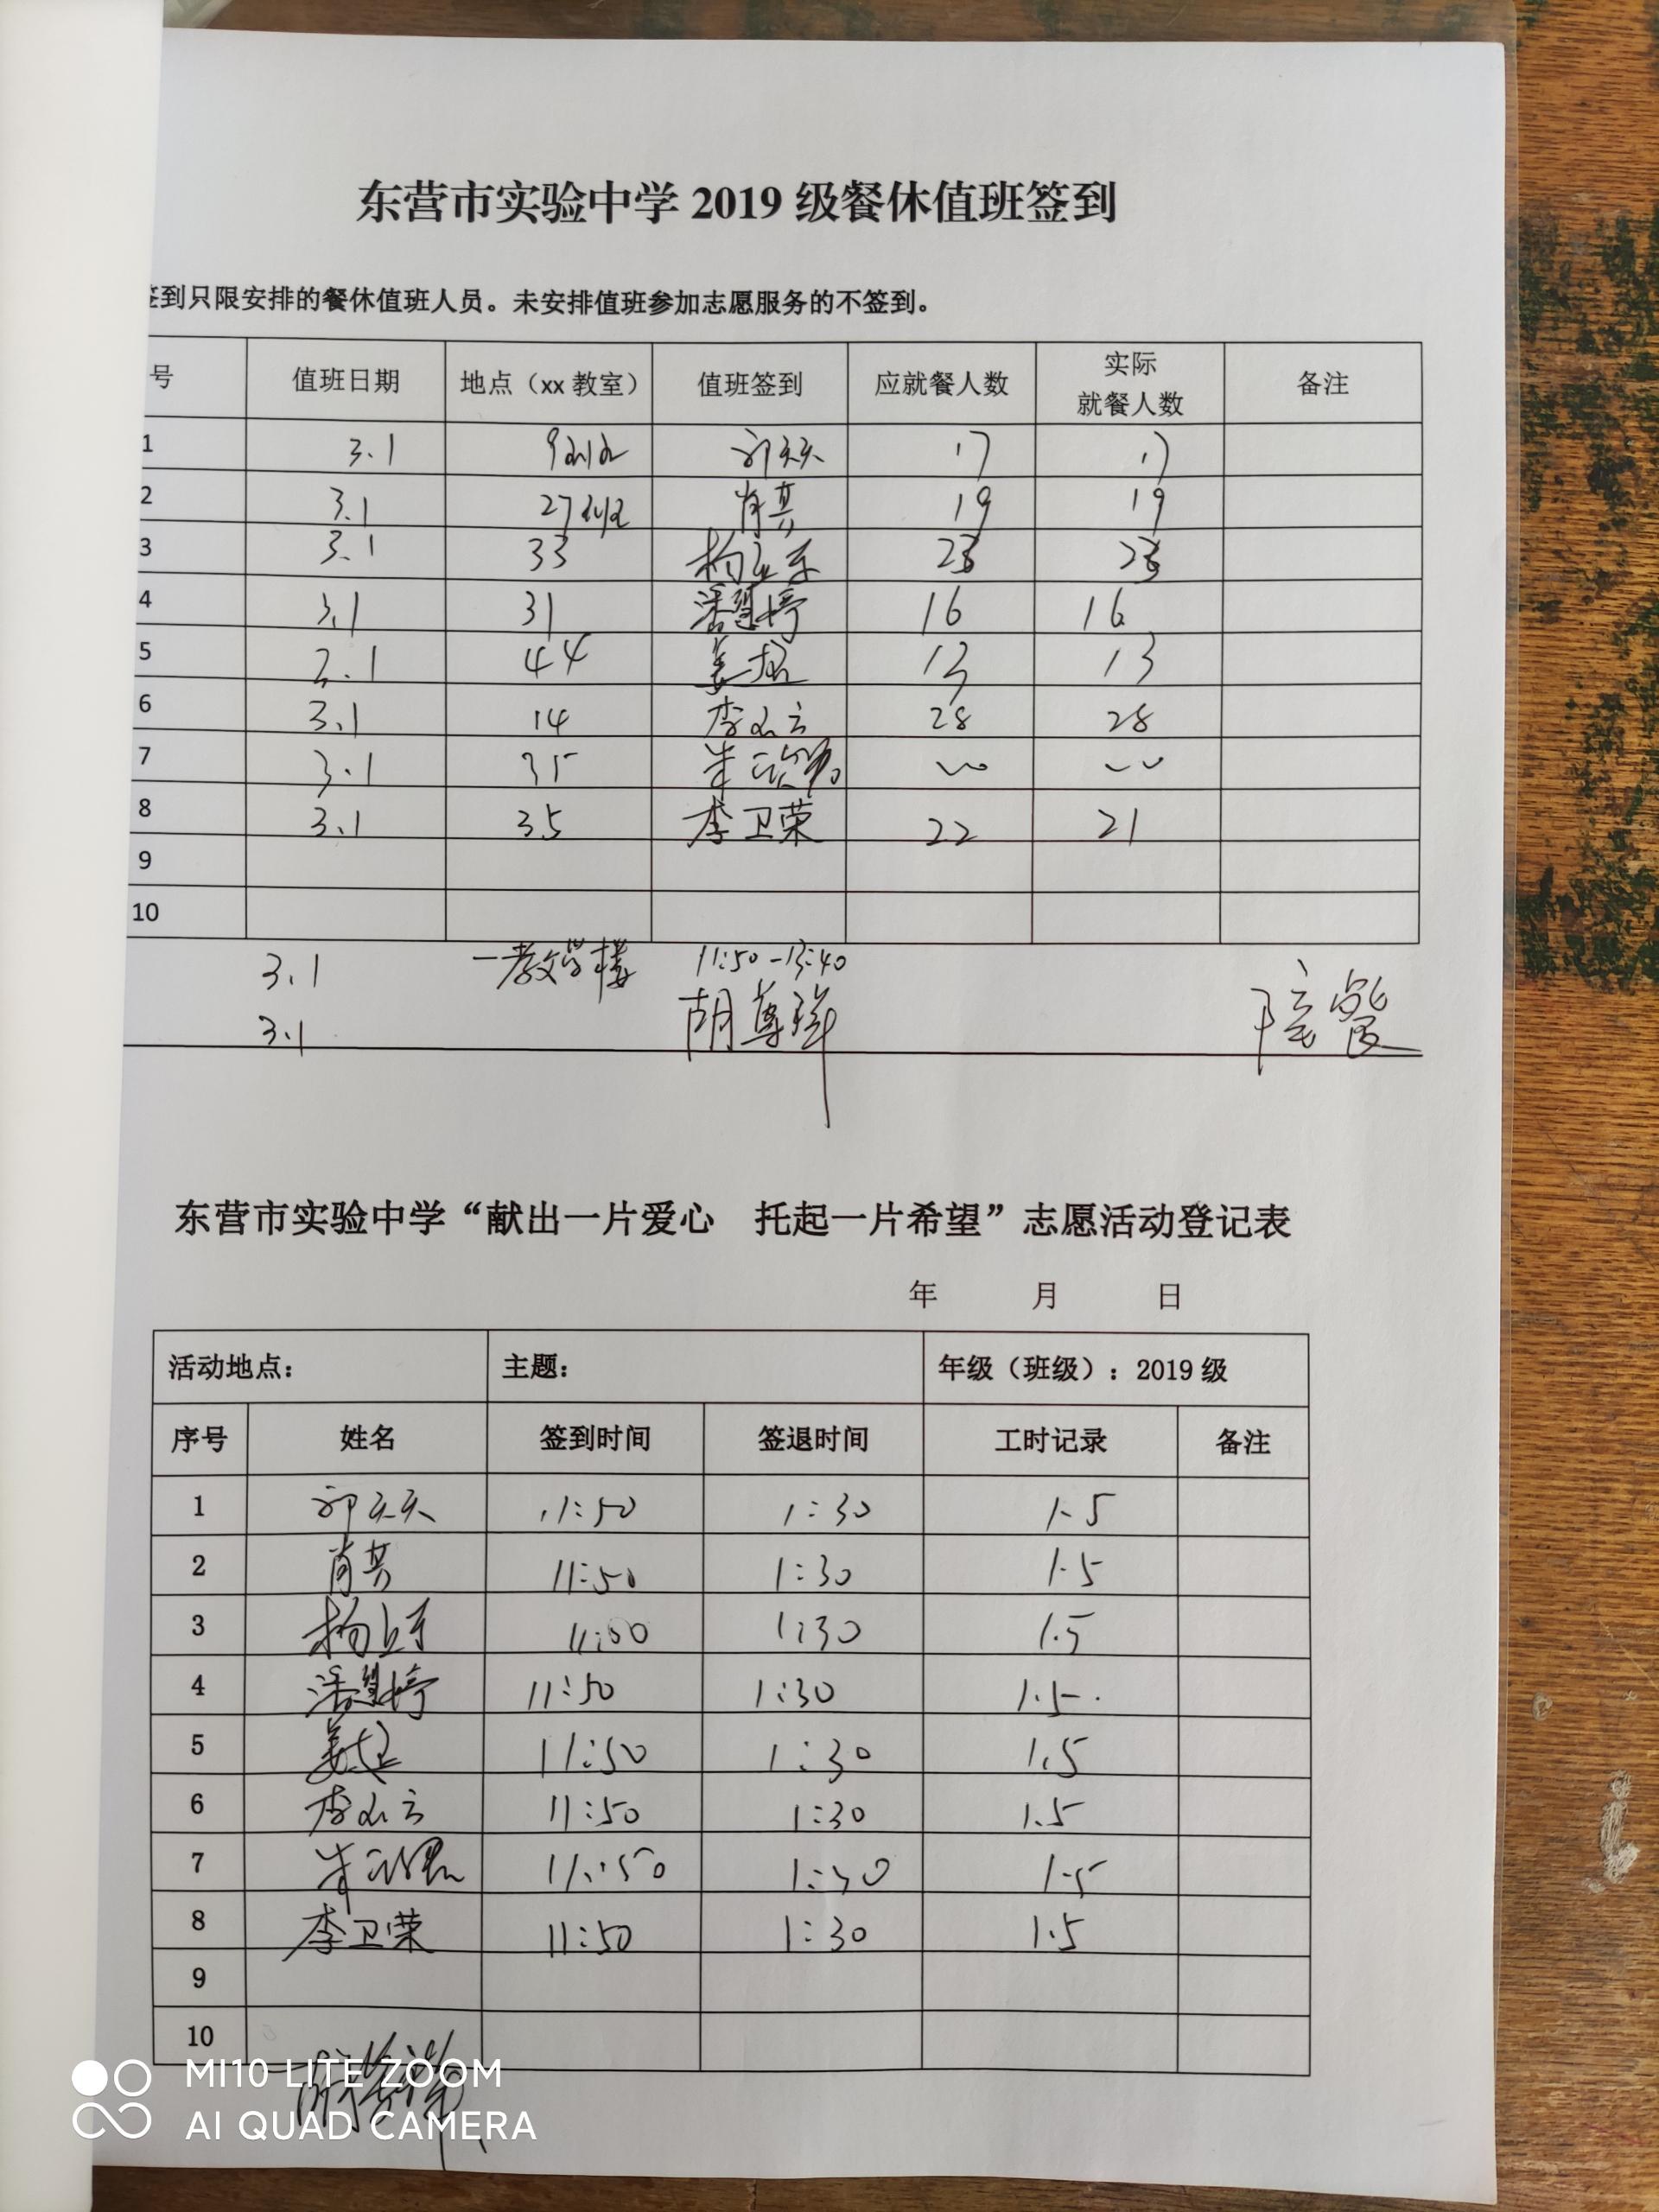 东营市实验中学 2019 级餐休值班签到
签到只限安排的餐休值班人员。未安排值班参加志愿服务的不签到。
号 值班日期 地点（xx 教室） 值班签到 应就餐人数 实际就餐人数 备注
1 3.1 9班 17 17
2 3.1 27班 肖芸 19 19
3 3.1 33 23 23
4 3.1 31 潘慧婷 16 16
5 3.1 44 13 13
6 3.1 14 28 28
7 3.1 35
8 3.1 35 李卫荣 22 21
9
10
3.1 一教学楼 11:50-13:40
3.1 胡尊祥 陪餐
东营市实验中学“献出一片爱心 托起一片希望”志愿活动登记表
年 月 日
活动地点： 主题： 年级（班级）：2019 级
序号 姓名 签到时间 签退时间 工时记录 备注
1 11:50 1:30 1.5
2 肖芸 11:50 1:30 1.5
3 11:50 1:30 1.5
4 潘慧婷 11:50 1:30 1.5
5 11:50 1:30 1.5
6 11:50 1:30 1.5
7 11:50 1:30 1.5
8 李卫荣 11:50 1:30 1.5
9
10
胡尊祥
MI10 LITE ZOOM
AI QUAD CAMERA